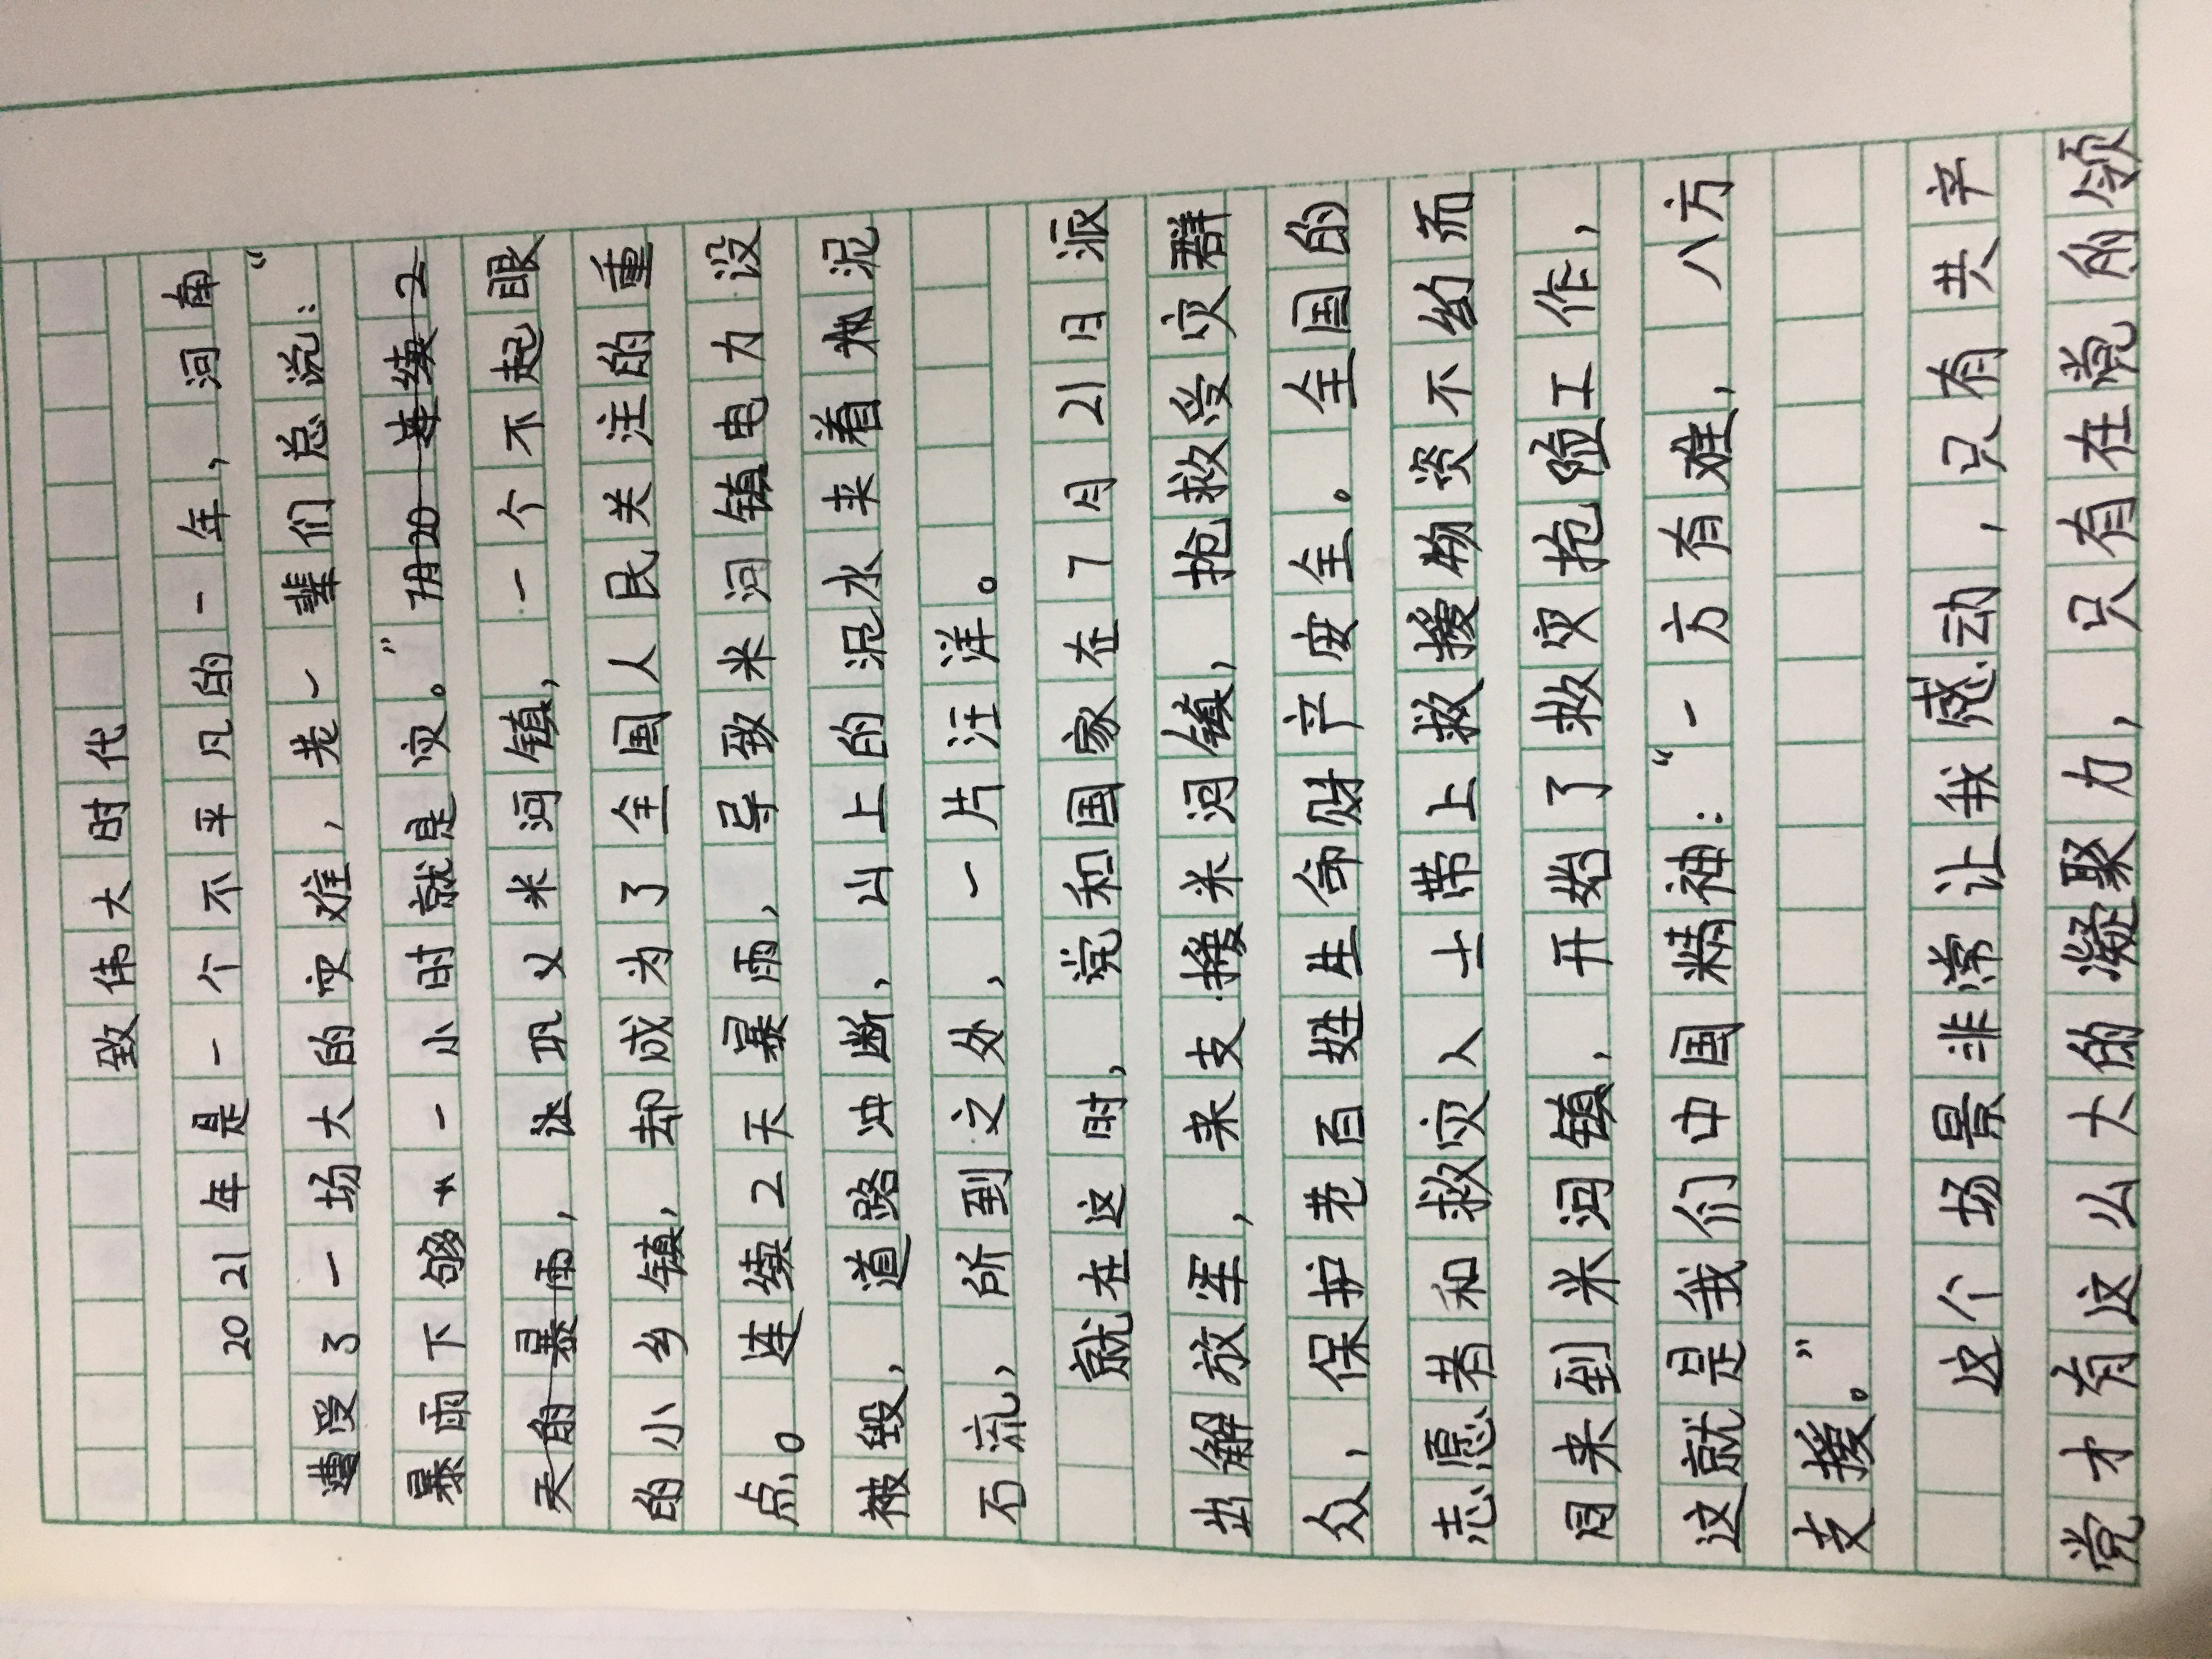 致伟大时代
2021年是一个不平凡的一年，河南
遭受了一场大的灾难，老一辈们总说：“
暴雨下够一小时就是灾。”7月20连续2
天的暴雨，让巩义米河镇，一个不起眼
的小乡镇，却成为了全国人民关注的重
点。连续2天暴雨，导致米河镇电力设
被毁，道路冲断，山上的泥水来着泥
石流，所到之处，一片汪洋。
就在这时，党和国家在7月21日派
出解放军，来支援米河镇，抢救受灾群
众，保护老百姓生命财产安全。全国的
志愿者和救灾人士带上救援物资不约而
同来到米河镇，开始了救灾抢险工作，
这就是我们中国精神：“一方有难，八方
支援。”
这个场景非常让我感动，只有共产
党才有这么大的凝聚力，只有在党的领